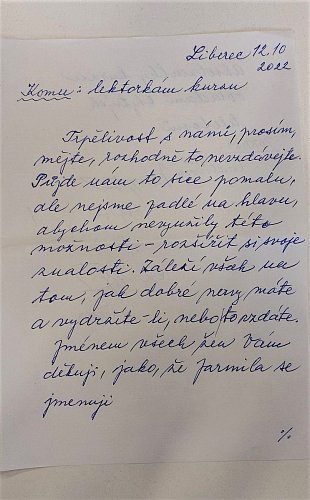 Liberec 12.10
2022
Komu: lektorkám kurzu
Trpělivost s námi, prosím,
mějte, rozhodně to nevzdávejte.
Půjde nám to sice pomalu,
ale nejsme padlé na hlavu,
abychom nevyužily této
možnosti - rozšířit si svoje
znalosti. Záleží však na
tom, jak dobré nervy máte
a vydržíte-li, nebo to vzdáte.
Jménem všech žen Vám
děkuji, jako, že Jarmila se
jmenuji
%